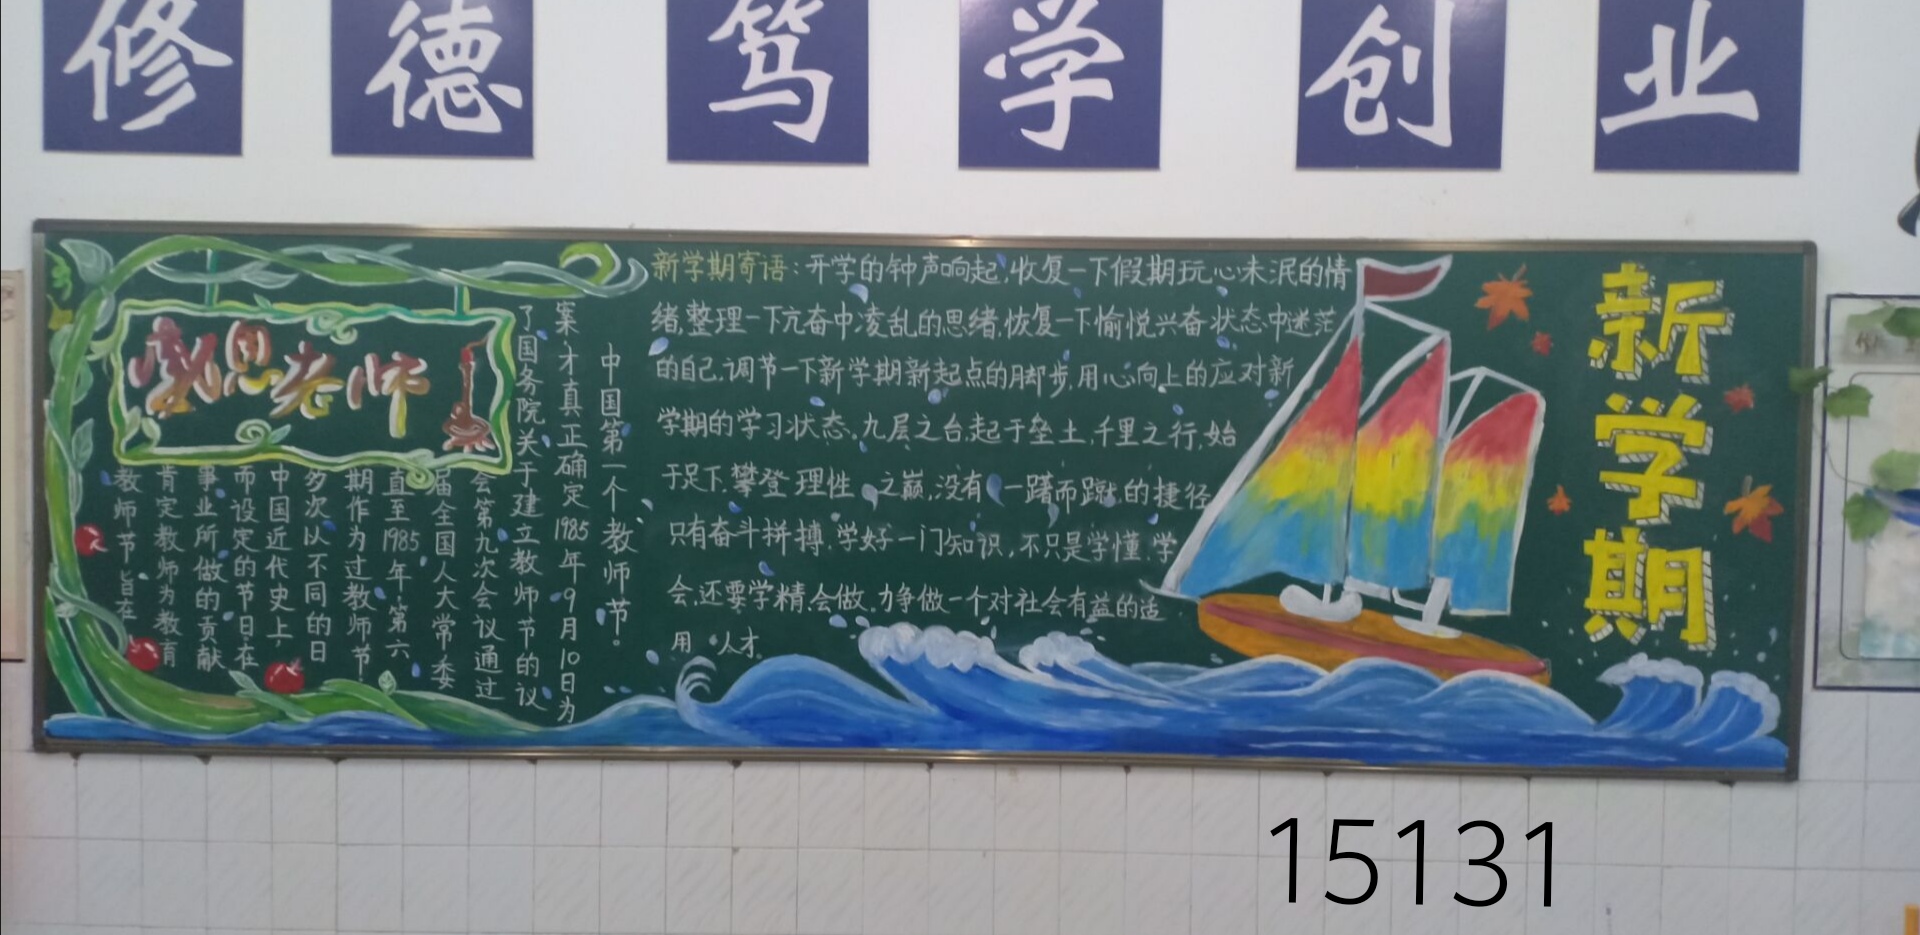 修德笃学创业
感恩老师
教师节旨在
肯定教师为教育
事业所做的贡献
而设定的节日在
中国近代史上,
多次以不同的日
期作为过教师节
直至1985年第六
届全国人大常委
会第九次会议通过
了国务院关于建立教师节的议
案,才真正确定1985年9月10日为
中国第一个教师节。
新学期寄语:开学的钟声响起,收复一下假期玩心未泯的情
绪,整理一下亢奋中凌乱的思绪,恢复一下愉悦兴奋状态中迷茫
的自己,调节一下新学期新起点的脚步,用心向上的应对新
学期的学习状态。九层之台,起于垒土,千里之行,始
于足下,攀登理性之巅,没有一蹴的捷径
只有奋斗拼搏,学好一门知识,不只是学懂,学
会,还要学精,会做。力争做一个对社会有益的适
用人才。
新学期
15131